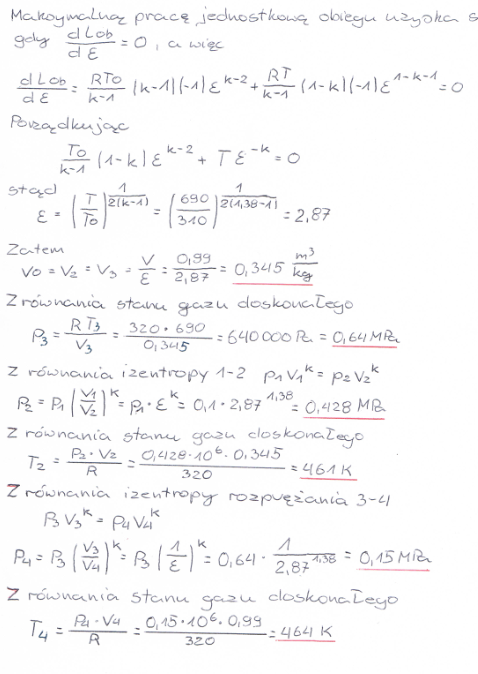 Maksymalną pracę jednostkową obiegu uzyska s
gdy dLob/dε = 0, a więc
dLob/dε = RTo/k-1 (k-1)(-1) ε^k-2 + RT/k-1 (1-k)(-1) ε^1-k-1 = 0
Porządkując
To/k-1 (1-k) ε^k-2 + T ε^-k = 0
stąd
ε = (T/To)^1/2(k-1) = (690/310)^1/2(1,38-1) = 2,87
Zatem
Vo = V2 = V3 = V/ε = 0,99/2,87 = 0,345 m³/kg
Z równania stanu gazu doskonałego
P3 = RT3/V3 = 320·690/0,345 = 640000 Pa = 0,64 MPa
z równania izentropy 1-2 p1V1^k = p2V2^k
P2 = P1 (V1/V2)^k = p1·ε^k = 0,1·2,87^1,38 = 0,428 MPa
Z równania stanu gazu doskonałego
T2 = P2·V2/R = 0,428·10^6·0,345/320 = 461 K
Z równania izentropy rozprężania 3-4
P3V3^k = P4V4^k
P4 = P3 (V3/V4)^k = P3 (1/ε)^k = 0,64 · 1/2,87^1,38 = 0,15 MPa
Z równania stanu gazu doskonałego
T4 = P4·V4/R = 0,15·10^6·0,99/320 = 464 K